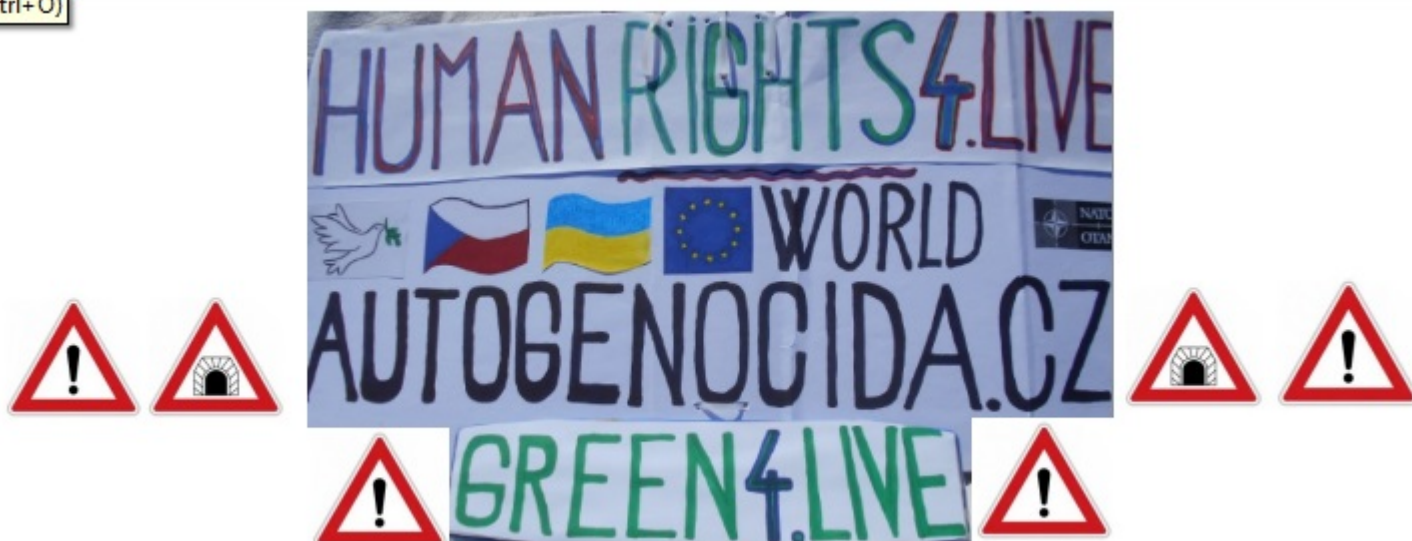 trl+O)
HUMAN RIGHTS 4.LIVE
WORLD
NATO
OTAN
AUTOGENOCIDA.CZ
GREEN4.LIVE